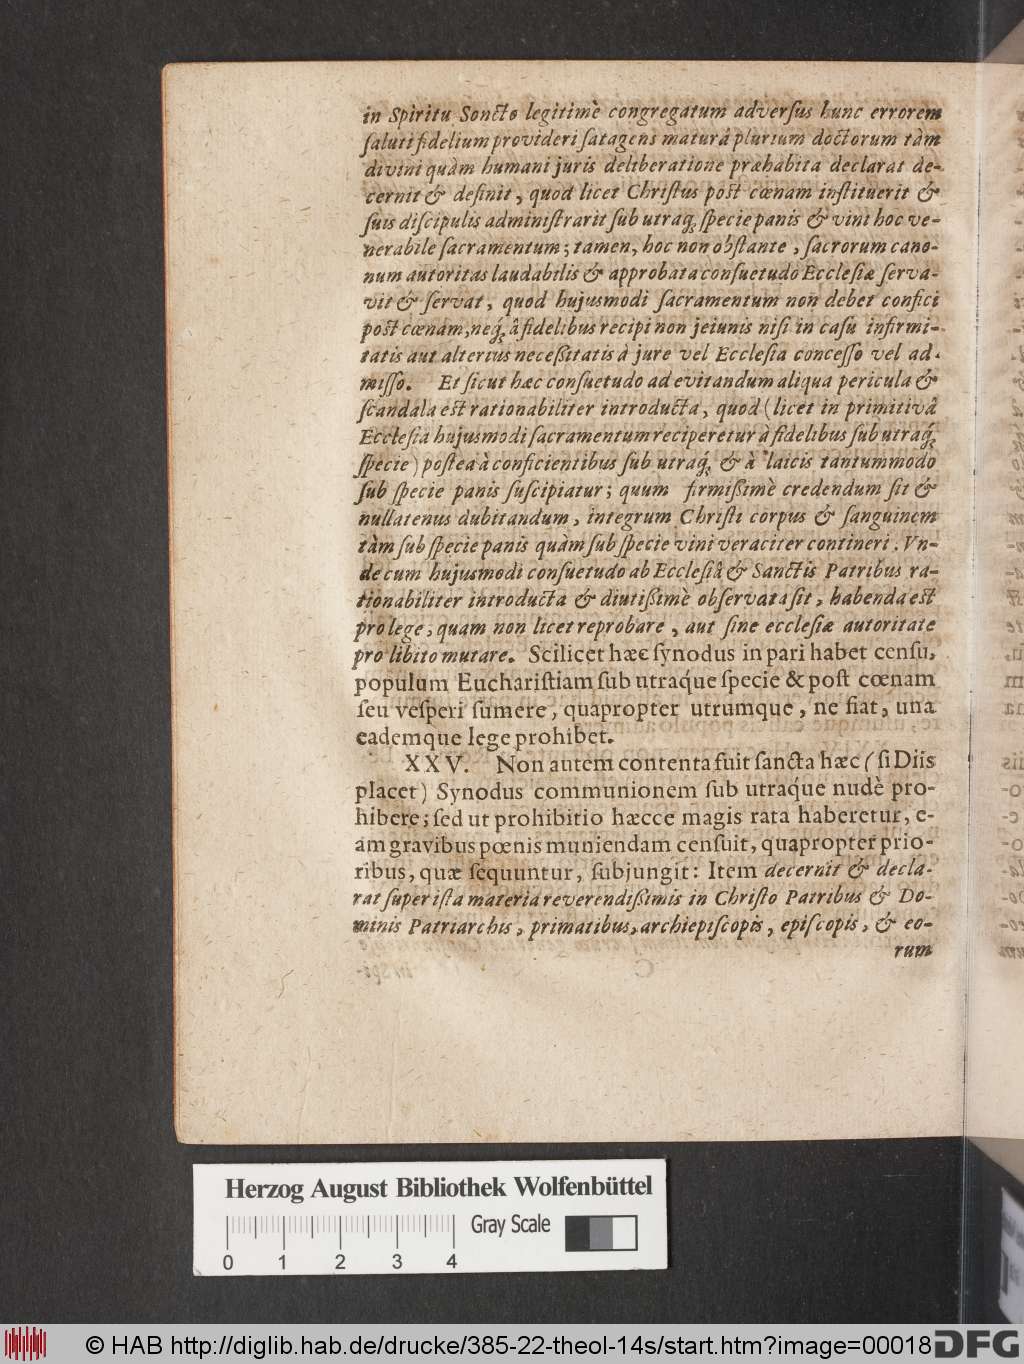 in Spiritu Soncto legitimè congregatum adverſus hunc errorem
ſaluti fidelium provideri ſatagens maturâ plurium doctorum tàm
divini quàm humani juris deliberatione præhabita declarat de-
cernit & definit, quod licet Chriſtus poſt cœnam inſtituerit &
ſuis diſcipulis adminiſtrarit ſub utraq; ſpecie panis & vini hoc ve-
nerabile ſacramentum; tamen, hoc non obſtante, ſacrorum cano-
num autoritas laudabilis & approbata conſuetudo Eccleſiæ ſerva-
vit & ſervat, quod hujusmodi ſacramentum non debet confici
poſt cœnam, neq́; â fidelibus recipi non jejunis niſi in caſu infirmi-
tatis aut alterius neceßitatis à jure vel Eccleſia conceſſo vel ad-
miſſo. Et ſicut hæc conſuetudo ad evitandum aliqua pericula &
ſcandala eſt rationabiliter introducta, quod (licet in primitivâ
Eccleſiâ hujusmodi ſacramentum reciperetur à fidelibus ſub utraq́;
ſpecie) poſtea à conficientibus ſub utraq́; & à laicis tantummodo
ſub ſpecie panis ſuſcipiatur; quum firmißimè credendum ſit &
nullatenus dubitandum, integrum Chriſti corpus & ſanguinem
tàm ſub ſpecie panis quàm ſub ſpecie vini veraciter contineri. Vn-
de cum hujusmodi conſuetudo ab Eccleſiâ & Sanctis Patribus ra-
tionabiliter introducta & diutißimè obſervata ſit, habenda eſt
pro lege, quam non licet reprobare, aut ſine eccleſiæ autoritate
pro libito mutare. Scilicet hæc ſynodus in pari habet cenſu,
populum Euchariſtiam ſub utraque ſpecie & poſt cœnam
ſeu veſperi ſumere, quapropter utrumque, ne fiat, una
eademque lege prohibet.
XXV. Non autem contenta fuit ſancta hæc (ſi Diis
placet) Synodus communionem ſub utraque nudè pro-
hibere; ſed ut prohibitio hæcce magis rata haberetur, e-
am gravibus pœnis muniendam cenſuit, quapropter prio-
ribus, quæ ſequuntur, ſubjungit: Item decernit & decla-
rat ſuper iſta materia reverendißimis in Chriſto Patribus & Do-
minis Patriarchis, primatibus, archiepiſcopis, epiſcopis, & eo-
rum
Herzog August Bibliothek Wolfenbüttel
Gray Scale
0 1 2 3 4
© HAB http://diglib.hab.de/drucke/385-22-theol-14s/start.htm?image=00018
DFG